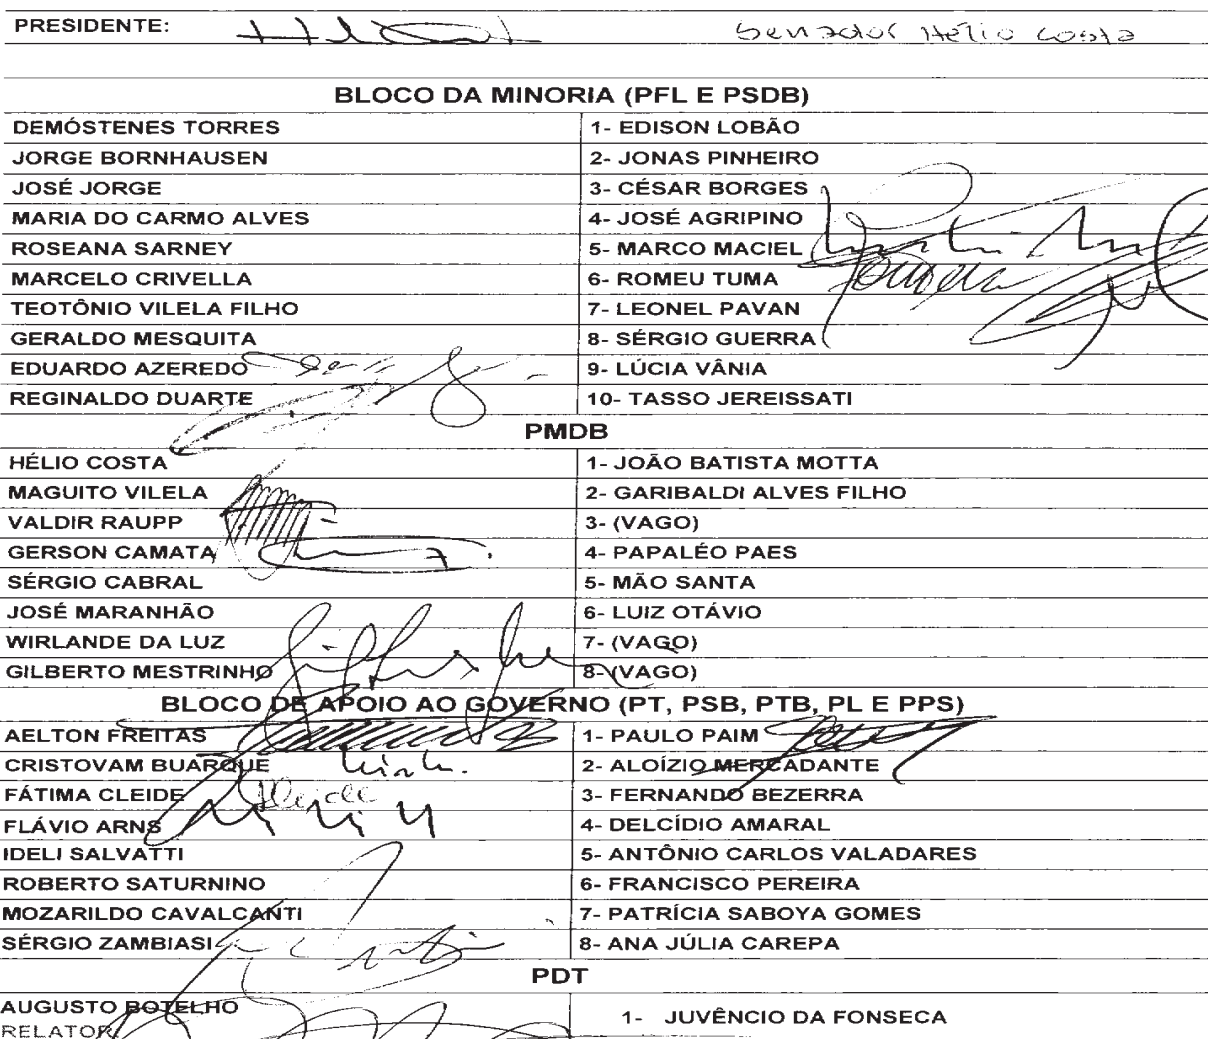 PRESIDENTE: Senador Hélio Costa
BLOCO DA MINORIA (PFL E PSDB)
DEMÓSTENES TORRES 1- EDISON LOBÃO
JORGE BORNHAUSEN 2- JONAS PINHEIRO
JOSÉ JORGE 3- CÉSAR BORGES
MARIA DO CARMO ALVES 4- JOSÉ AGRIPINO
ROSEANA SARNEY 5- MARCO MACIEL
MARCELO CRIVELLA 6- ROMEU TUMA
TEOTÔNIO VILELA FILHO 7- LEONEL PAVAN
GERALDO MESQUITA 8- SÉRGIO GUERRA
EDUARDO AZEREDO 9- LÚCIA VÂNIA
REGINALDO DUARTE 10- TASSO JEREISSATI
PMDB
HÉLIO COSTA 1- JOÃO BATISTA MOTTA
MAGUITO VILELA 2- GARIBALDI ALVES FILHO
VALDIR RAUPP 3- (VAGO)
GERSON CAMATA 4- PAPALÉO PAES
SÉRGIO CABRAL 5- MÃO SANTA
JOSÉ MARANHÃO 6- LUIZ OTÁVIO
WIRLANDE DA LUZ 7- (VAGO)
GILBERTO MESTRINHO 8- (VAGO)
BLOCO DE APOIO AO GOVERNO (PT, PSB, PTB, PL E PPS)
AELTON FREITAS 1- PAULO PAIM
CRISTOVAM BUARQUE 2- ALOÍZIO MERCADANTE
FÁTIMA CLEIDE 3- FERNANDO BEZERRA
FLÁVIO ARNS 4- DELCÍDIO AMARAL
IDELI SALVATTI 5- ANTÔNIO CARLOS VALADARES
ROBERTO SATURNINO 6- FRANCISCO PEREIRA
MOZARILDO CAVALCANTI 7- PATRÍCIA SABOYA GOMES
SÉRGIO ZAMBIASI 8- ANA JÚLIA CAREPA
PDT
AUGUSTO BOTELHO 1- JUVÊNCIO DA FONSECA
RELATOR